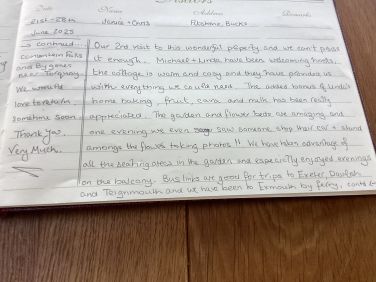 Visitors
Date Name Address Remarks
21st-28th Janice + Chris Ribstone, Bucks
June 2025
→ continued
Our 2nd visit to this wonderful property and we can't praise
it enough. Michael + Linda have been welcoming hosts,
and Bygones
near Torquay.
the cottage is warm and cosy and they have provided us
We would
with everything we could need. The added bonus of Linda's
love to return
home baking, fruit, cava and milk has been really
sometime soon.
appreciated. The garden and flower beds are amazing and
Thank You.
one evening we even saw someone stop their car + stand
Very Much.
amongs the flowers taking photos!! We have taken advantage of
all the seating areas in the garden and especially enjoyed evenings
on the balcony. Bus links are good for trips to Exeter, Dawlish
and Teignmouth and we have been to Exmouth by ferry, contd ←